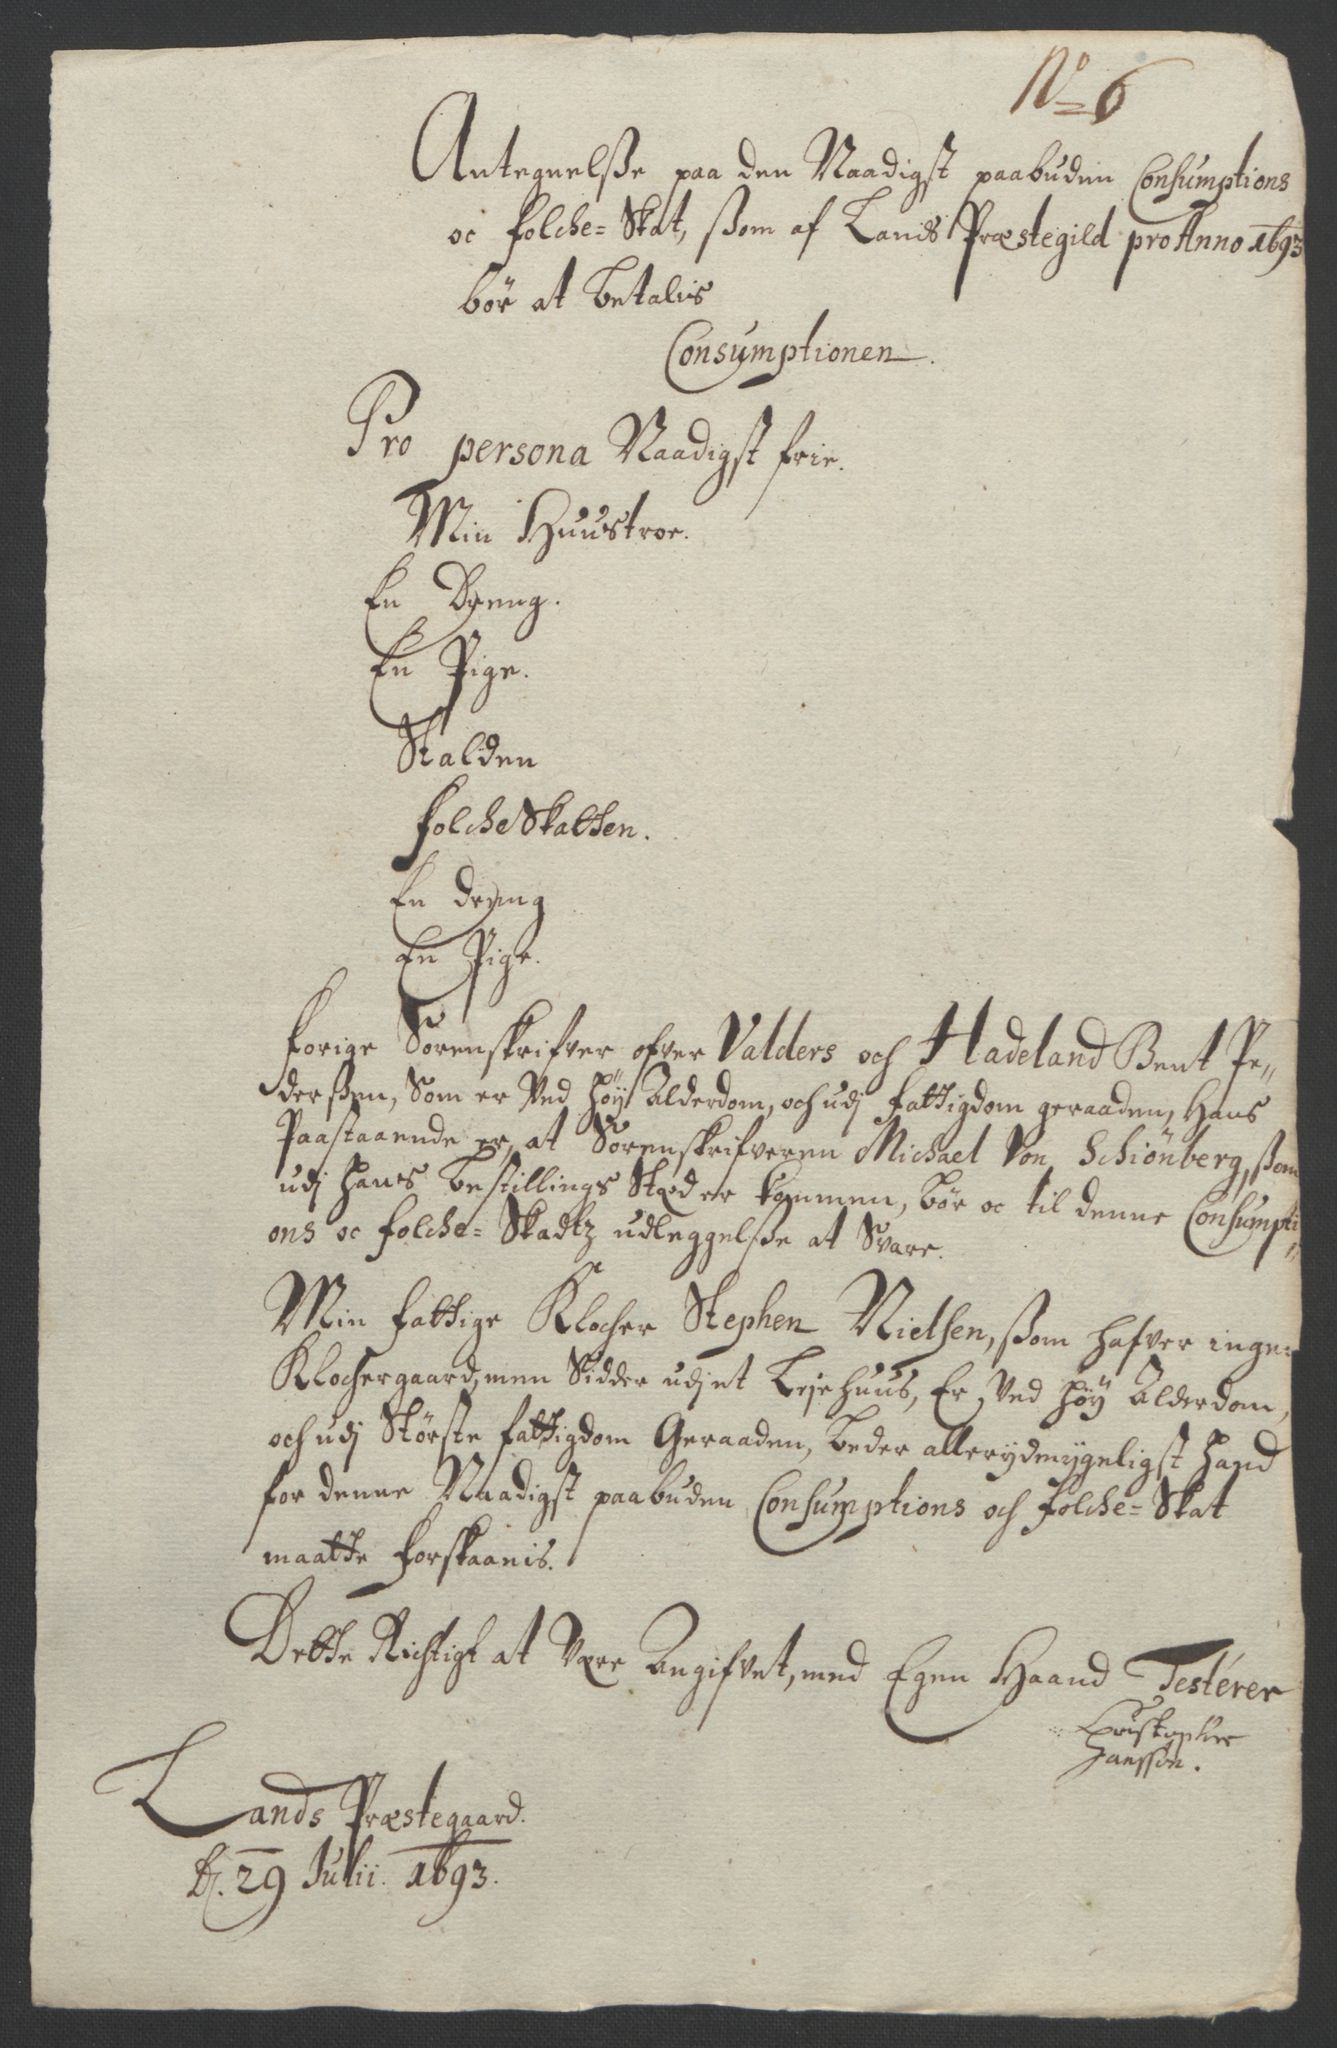 No 6
Antegnelsße paa den Naadigst paabuden Consumptions
oc folche= Skat, ßom af Lands Præstegield pro Anno 1693
bör at betalis
Consumptionen.
Pro persona Naadigst frie.
Min Huustroe.
En Dreng.
En Pige.
Stalden
folcheSkatten.
En dreng
En Pige.
Forige Sorenskrifver ofver Valders och Hadeland Bent Pe„
derßen, Som er Ved höÿ Alderdom, och udj fattigdom geraaden, Hans
Paastaaende er, at Sorenskrifveren Michael Von Schiönberg, ßom
udj hans bestillings Stæd er kommen, bör oc til denne Consumpti„
ons oc folche= Skadtz udleggelsße at Svare.
Min fattige Klocher Stephen Nielsen, ßom hafver ingen
Klochergaard, men Sidder udj et Lejehuus, Er Ved höÿ Alderdom,
och udj Störste fattigdom Geraaden, beder allerydmygeligst hand
for denne Naadigst paabuden Consumptions och folche= Skat
maatte forskaanis.
Dette Richtigt at Være Angifvet, med Egen Haand Testerer
Christopher
Hansson.
Lands Præstegaard.
d. 29 Julii. 1693.